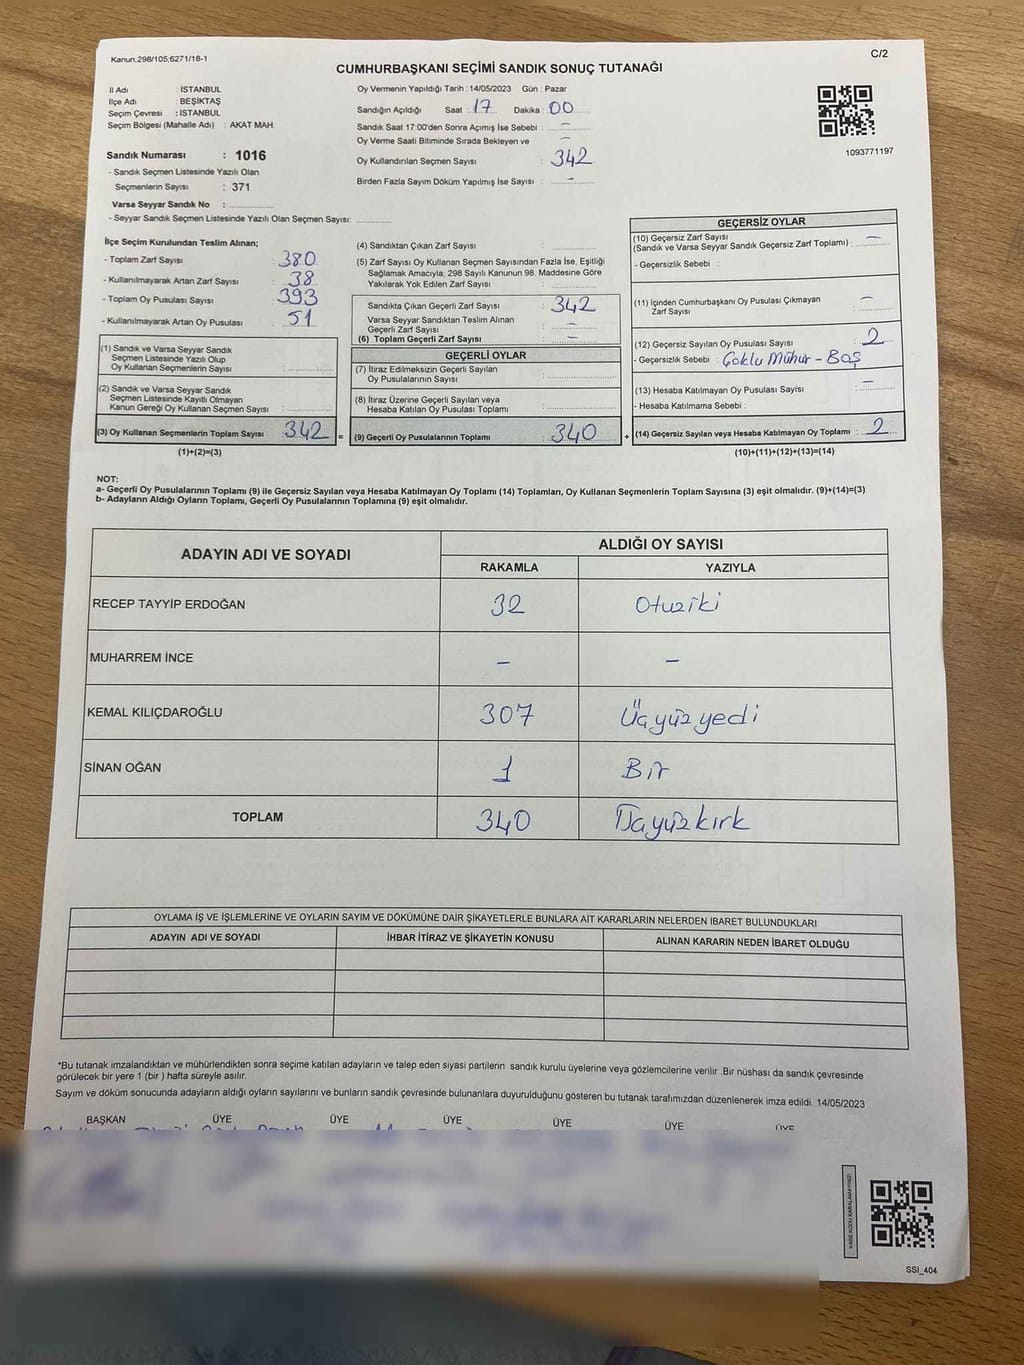 Kanun:298/105;6271/18-1
C/2
CUMHURBAŞKANI SEÇİMİ SANDIK SONUÇ TUTANAĞI
İl Adı : İSTANBUL
İlçe Adı : BEŞİKTAŞ
Seçim Çevresi : İSTANBUL
Seçim Bölgesi (Mahalle Adı) : AKAT MAH.
Sandık Numarası : 1016
- Sandık Seçmen Listesinde Yazılı Olan
Seçmenlerin Sayısı : 371
Varsa Seyyar Sandık No :
- Seyyar Sandık Seçmen Listesinde Yazılı Olan Seçmen Sayısı:
Oy Vermenin Yapıldığı Tarih : 14/05/2023 Gün : Pazar
Sandığın Açıldığı Saat : 17 Dakika : 00
Sandık Saat 17:00'den Sonra Açımış İse Sebebi : -
Oy Verme Saati Bitiminde Sırada Bekleyen ve -
Oy Kullandırılan Seçmen Sayısı : 342
Birden Fazla Sayım Döküm Yapılmış İse Sayısı : -
1093771197
İlçe Seçim Kurulundan Teslim Alınan;
- Toplam Zarf Sayısı : 380
- Kullanılmayarak Artan Zarf Sayısı : 38
- Toplam Oy Pusulası Sayısı : 393
- Kullanılmayarak Artan Oy Pusulası : 51
(1) Sandık ve Varsa Seyyar Sandık
Seçmen Listesinde Yazılı Olup
Oy Kullanan Seçmenlerin Sayısı :
(2) Sandık ve Varsa Seyyar Sandık
Seçmen Listesinde Kayıtlı Olmayan
Kanun Gereği Oy Kullanan Seçmen Sayısı :
(3) Oy Kullanan Seçmenlerin Toplam Sayısı : 342 =
(1)+(2)=(3)
(4) Sandıktan Çıkan Zarf Sayısı :
(5) Zarf Sayısı Oy Kullanan Seçmen Sayısından Fazla İse, Eşitliği
Sağlamak Amacıyla, 298 Sayılı Kanunun 98. Maddesine Göre
Yakılarak Yok Edilen Zarf Sayısı :
Sandıkta Çıkan Geçerli Zarf Sayısı : 342
Varsa Seyyar Sandıktan Teslim Alınan
Geçerli Zarf Sayısı : -
(6) Toplam Geçerli Zarf Sayısı : -
GEÇERLİ OYLAR
(7) İtiraz Edilmeksizin Geçerli Sayılan
Oy Pusulalarının Sayısı :
(8) İtiraz Üzerine Geçerli Sayılan veya
Hesaba Katılan Oy Pusulası Toplamı :
(9) Geçerli Oy Pusulalarının Toplamı : 340 +
GEÇERSİZ OYLAR
(10) Geçersiz Zarf Sayısı
(Sandık ve Varsa Seyyar Sandık Geçersiz Zarf Toplamı) : -
- Geçersizlik Sebebi :
(11) İçinden Cumhurbaşkanı Oy Pusulası Çıkmayan
Zarf Sayısı : -
(12) Geçersiz Sayılan Oy Pusulası Sayısı : 2
- Geçersizlik Sebebi : Çoklu Mühür - Boş
(13) Hesaba Katılmayan Oy Pusulası Sayısı : -
- Hesaba Katılmama Sebebi :
(14) Geçersiz Sayılan veya Hesaba Katılmayan Oy Toplamı : 2
(10)+(11)+(12)+(13)=(14)
NOT:
a- Geçerli Oy Pusulalarının Toplamı (9) ile Geçersiz Sayılan veya Hesaba Katılmayan Oy Toplamı (14) Toplamları, Oy Kullanan Seçmenlerin Toplam Sayısına (3) eşit olmalıdır. (9)+(14)=(3)
b- Adayların Aldığı Oyların Toplamı, Geçerli Oy Pusulalarının Toplamına (9) eşit olmalıdır.
ADAYIN ADI VE SOYADI
ALDIĞI OY SAYISI
RAKAMLA YAZIYLA
RECEP TAYYİP ERDOĞAN 32 Otuziki
MUHARREM İNCE - -
KEMAL KILIÇDAROĞLU 307 Üçyüzyedi
SİNAN OĞAN 1 Bir
TOPLAM 340 Üçyüzkırk
OYLAMA İŞ VE İŞLEMLERİNE VE OYLARIN SAYIM VE DÖKÜMÜNE DAİR ŞİKAYETLERLE BUNLARA AİT KARARLARIN NELERDEN İBARET BULUNDUKLARI
ADAYIN ADI VE SOYADI İHBAR İTİRAZ VE ŞİKAYETİN KONUSU ALINAN KARARIN NEDEN İBARET OLDUĞU
*Bu tutanak imzalandıktan ve mühürlendikten sonra seçime katılan adayların ve talep eden siyasi partilerin sandık kurulu üyelerine veya gözlemcilerine verilir .Bir nüshası da sandık çevresinde
görülecek bir yere 1 (bir ) hafta süreyle asılır.
Sayım ve döküm sonucunda adayların aldığı oyların sayılarını ve bunların sandık çevresinde bulunanlara duyurulduğunu gösteren bu tutanak tarafımızdan düzenlenerek imza edildi. 14/05/2023
BAŞKAN ÜYE ÜYE ÜYE ÜYE ÜYE ÜYE
SSI_404